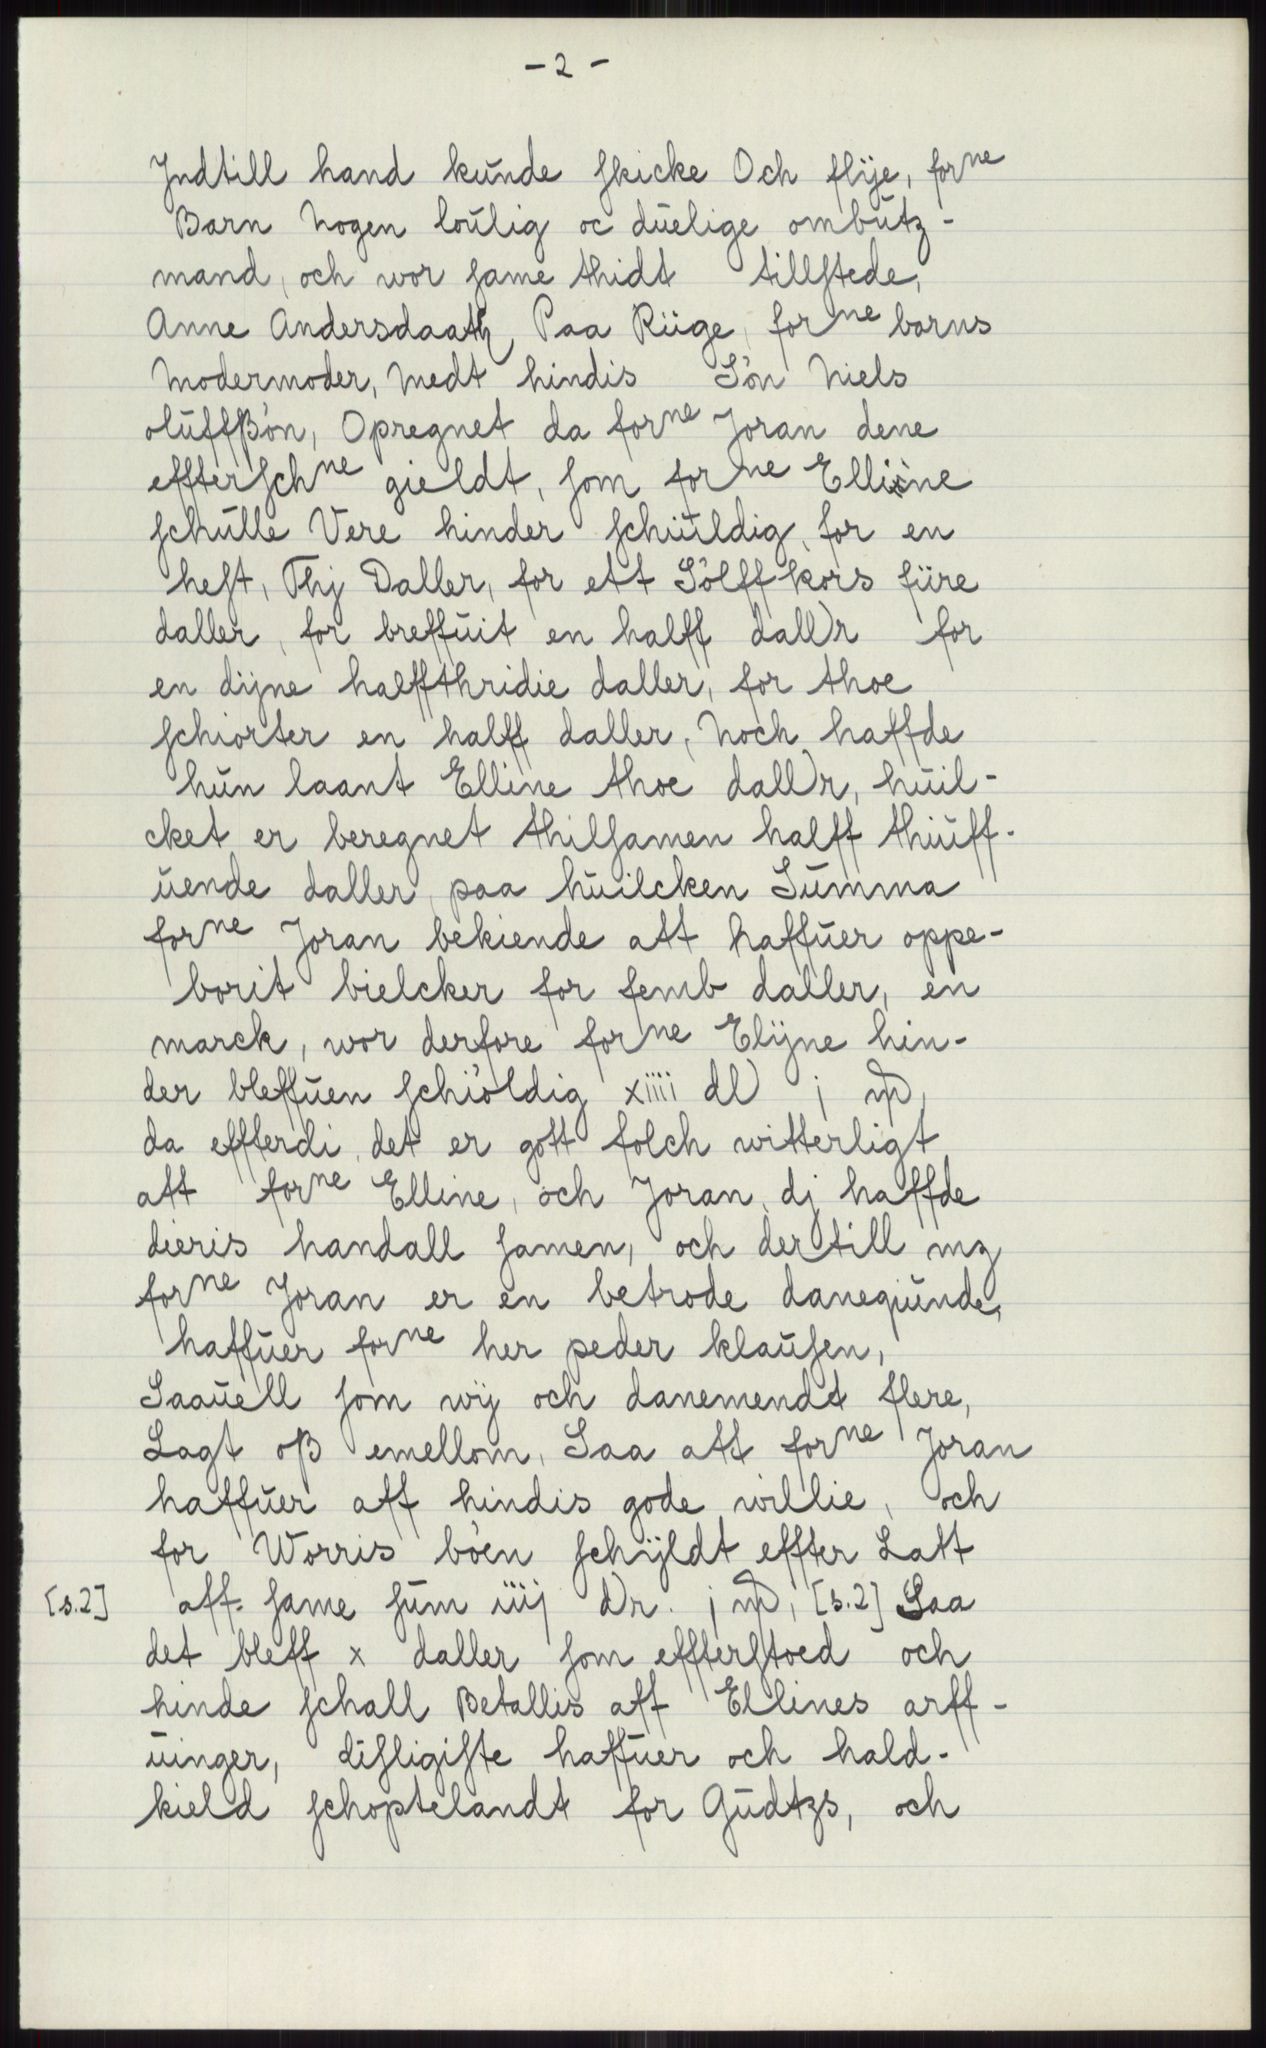 - 2 -
Jndtill hand kunde skicke Och flÿe, forne
Barn Nogen loulig oc duelige ombutz-
mand, och wor same thidt tillstede,
Anne Andersdaath Paa Riige, forne barns
Modermoder, Medt hindis Søn Niels
oluffßøn, Opregnet da forne Joran dene
effterschne gieldt, som forne Elliine
schulle Vere hinder schiuldig, for en
hest, Thj Daller, for ett Sølff kors fiire
daller, for breffuit en halff dallr for
en dÿne halffthridie daller, for thoe
schiorter en halff daller, Noch haffde
hun laant Elline thoe dallr, huil-
cket er beregnet thilsamen halff thiuff-
uende daller, paa huilcken Summa
forne Joran bekiende att haffuer oppe-
borit bielcker for femb daller, en
marck, wor derfore forne Elÿne hin-
der bleffuen schiøldig xiiii dl j mp,
da effterdi, det er gott folch witterligt
att forne Elline, och Joran, dj haffde
dieris handall samen, och dertill mz
forne Joran er en betrode danequinde,
haffuer forne her peder klausen,
Saauell som wÿ och danemendt flere,
Lagt oß emellom, Saa att forne Joran
haffuer aff hindis gode willie, och
for Worris bøen schÿldt effter Latt
[s.2] aff same sum iiij dr. j mp, [s.2] Saa
det bleff x daller som effterstoed och
hinde schall Betallis aff Ellines arff-
uinger, disligiste haffuer och hald-
kield schoptelandt for Gudtzs, och